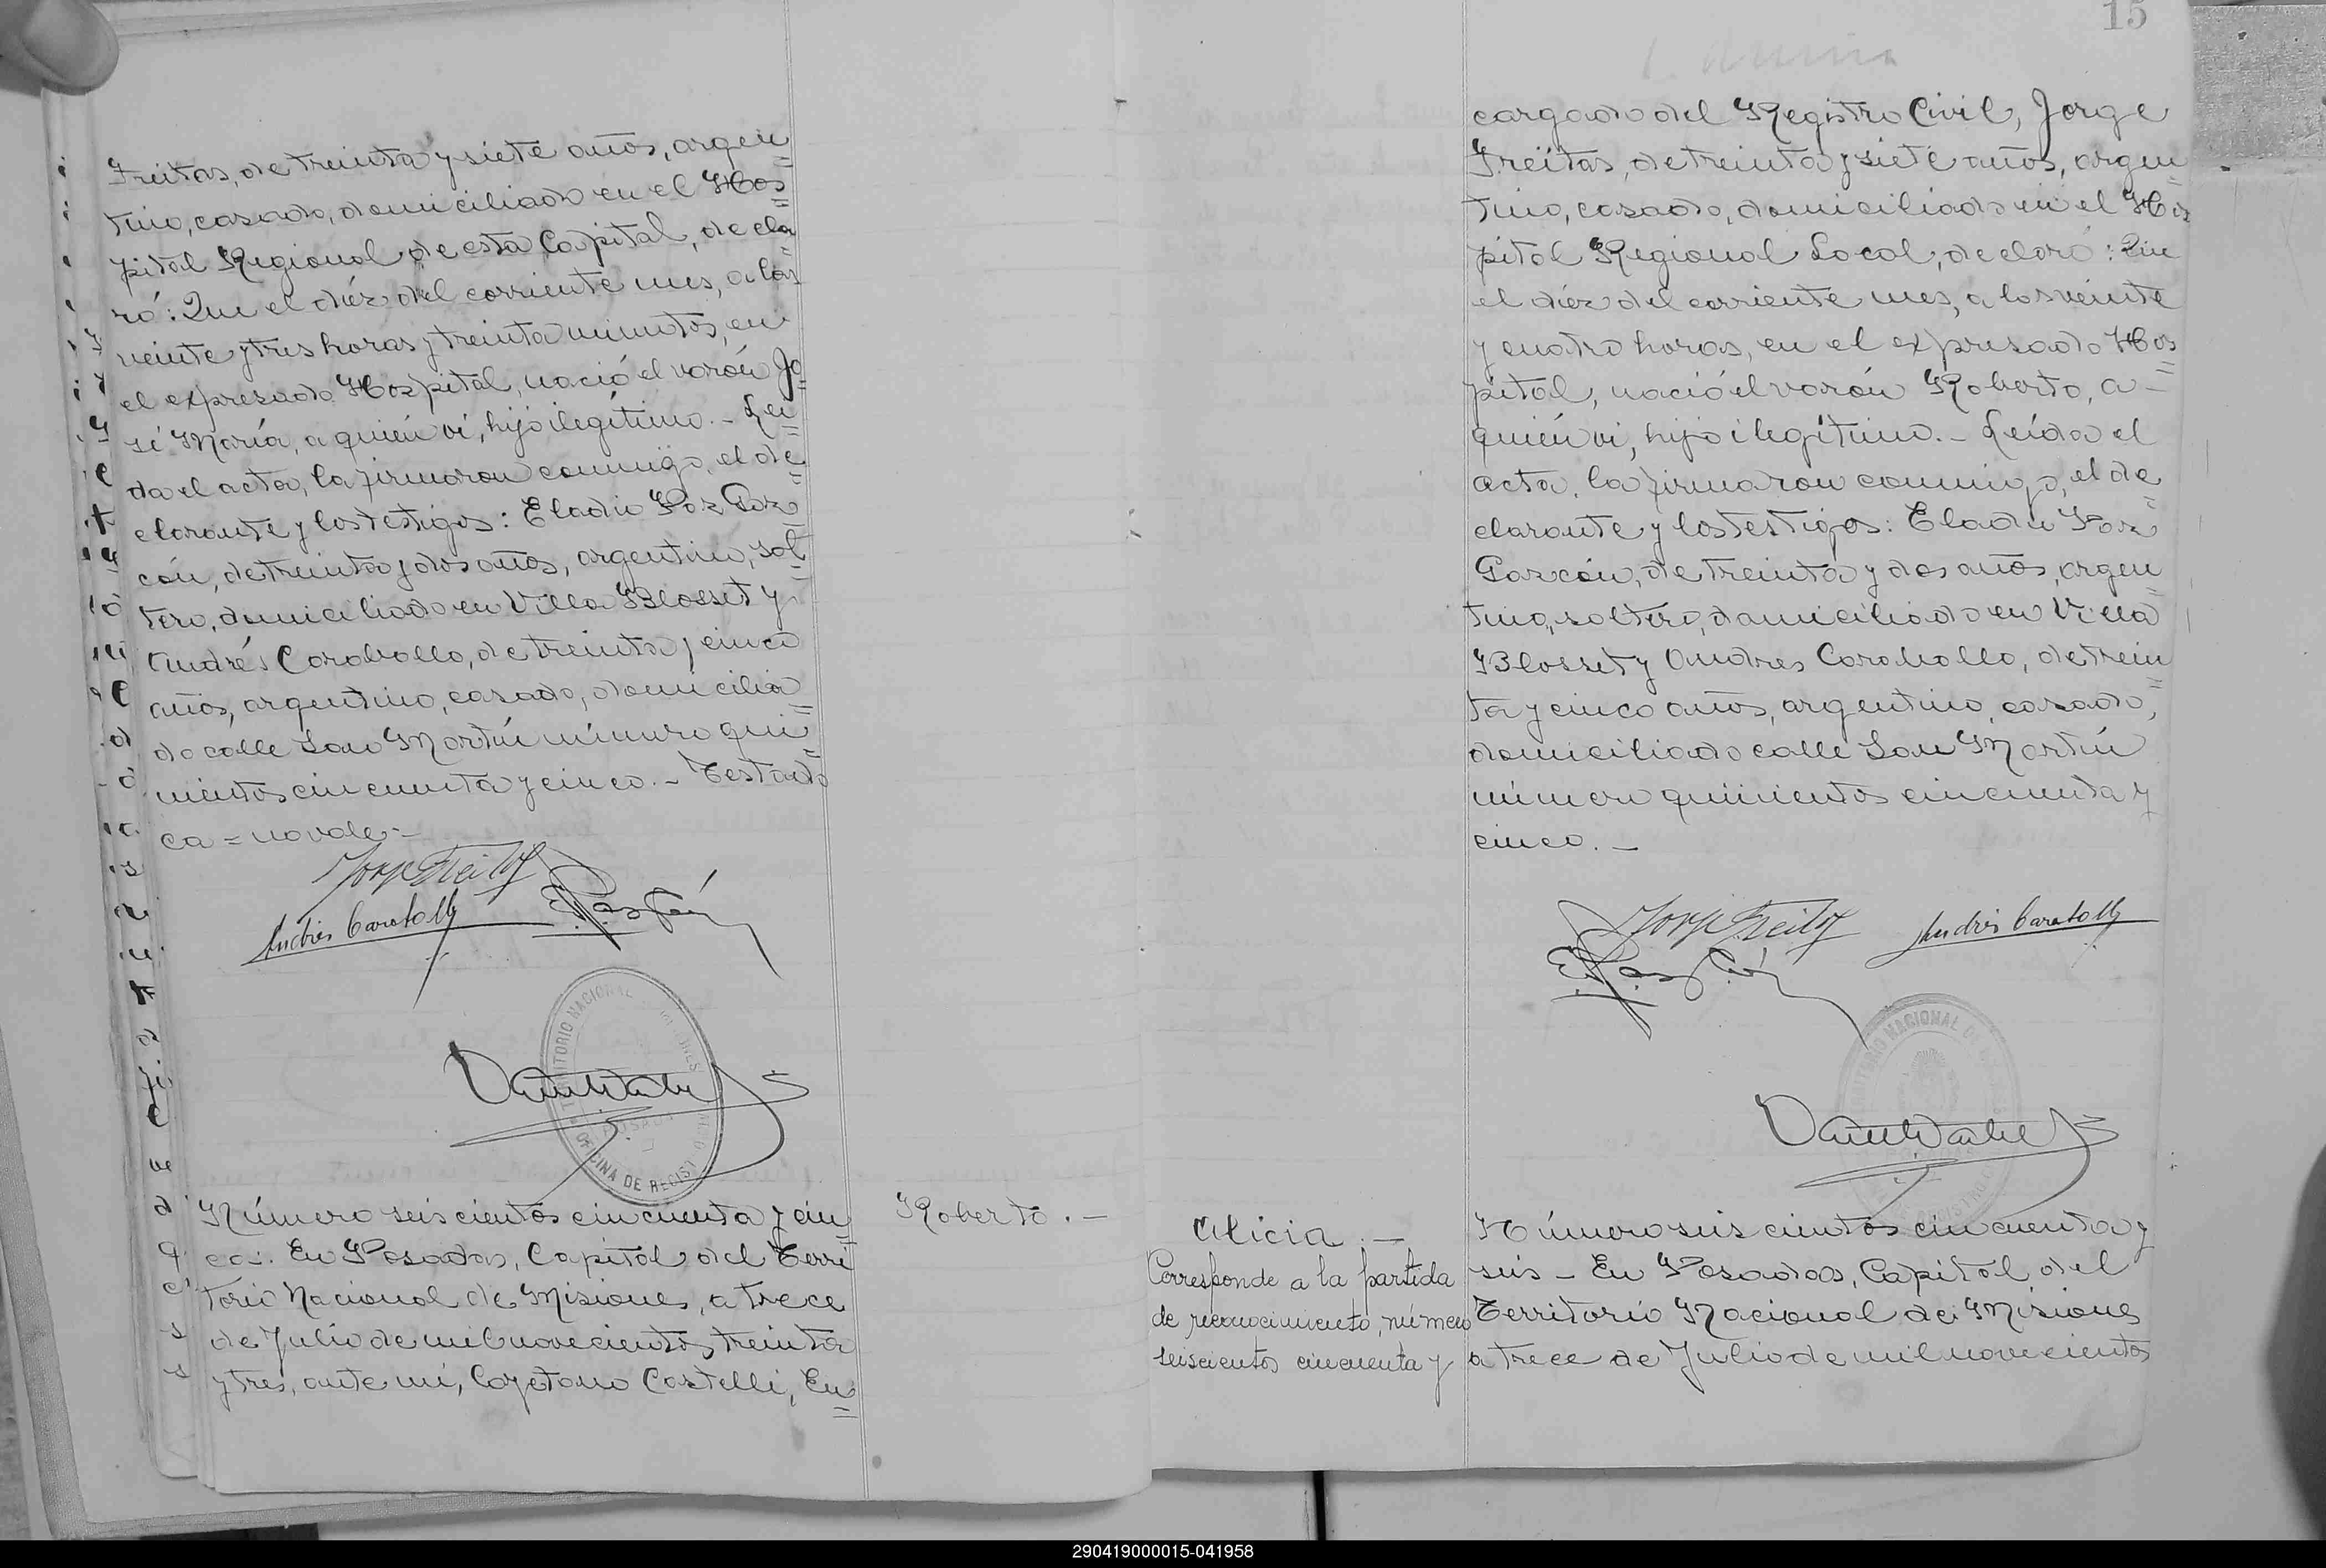 Freitas, de treinta y siete años, argen
tino, casado, domiciliado en el Hos
pital Regional de esta Capital, decla
ró: Que el diéz del corriente mes, a las
veinte y tres horas y treinta minutos, en
el expresado Hospital, nació el varón Jo
sé María, a quién ví, hijo ilegítimo.- Leí
da el acta, la firmaron conmigo, el de
clarante y los testigos: Eladio Paz Gar
cón, de treinta y dos años, argentino, sol
tero, domiciliado en Villa Blosset y
Andrés Caraballo, de treinta y cinco
años, argentino, casado, domicilia
do calle San Martín número qui
nientos cincuenta y cinco.- Testado
ca = no vale.-
Jorge Freitas
Andrés Caraballo
TERRITORIO NACIONAL DE MISIONES
POSADAS
OFICINA DE REGISTRO
Número seiscientos cincuenta y cin
co.- En Posadas, Capital del Terri
torio Nacional de Misiones, a trece
de Julio de mil novecientos treinta
y tres, ante mí, Cayetano Castelli, En
Roberto.-
15
cargado del Registro Civil, Jorge
Freitas, de treinta y siete años, argen
tino, casado, domiciliado en el Hos
pital Regional Local, declaró: Que
el diéz del corriente mes, a las veinte
y cuatro horas, en el expresado Hos
pital, nació el varón Roberto, a
quién ví, hijo ilegítimo.- Leída el
acta, la firmaron conmigo, el de
clarante y los testigos: Eladio Paz
Garcón, de treinta y dos años, argen
tino, soltero, domiciliado en Villa
Blosset y Andres Caraballo, de trein
ta y cinco años, argentino, casado,
domiciliado calle San Martín
número quinientos cincuenta y
cinco.-
Jorge Freitas
Andrés Caraballo
TERRITORIO NACIONAL DE
Alicia.-
Corresponde a la partida
de reconocimiento, número
seiscientos cincuenta y
Número seiscientos cincuenta y
seis - En Posadas, Capital del
Territorio Nacional de Misiones
a trece de Julio de mil novecientos
290419000015-041958